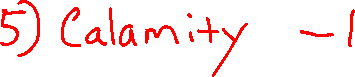 5) Calamity -1